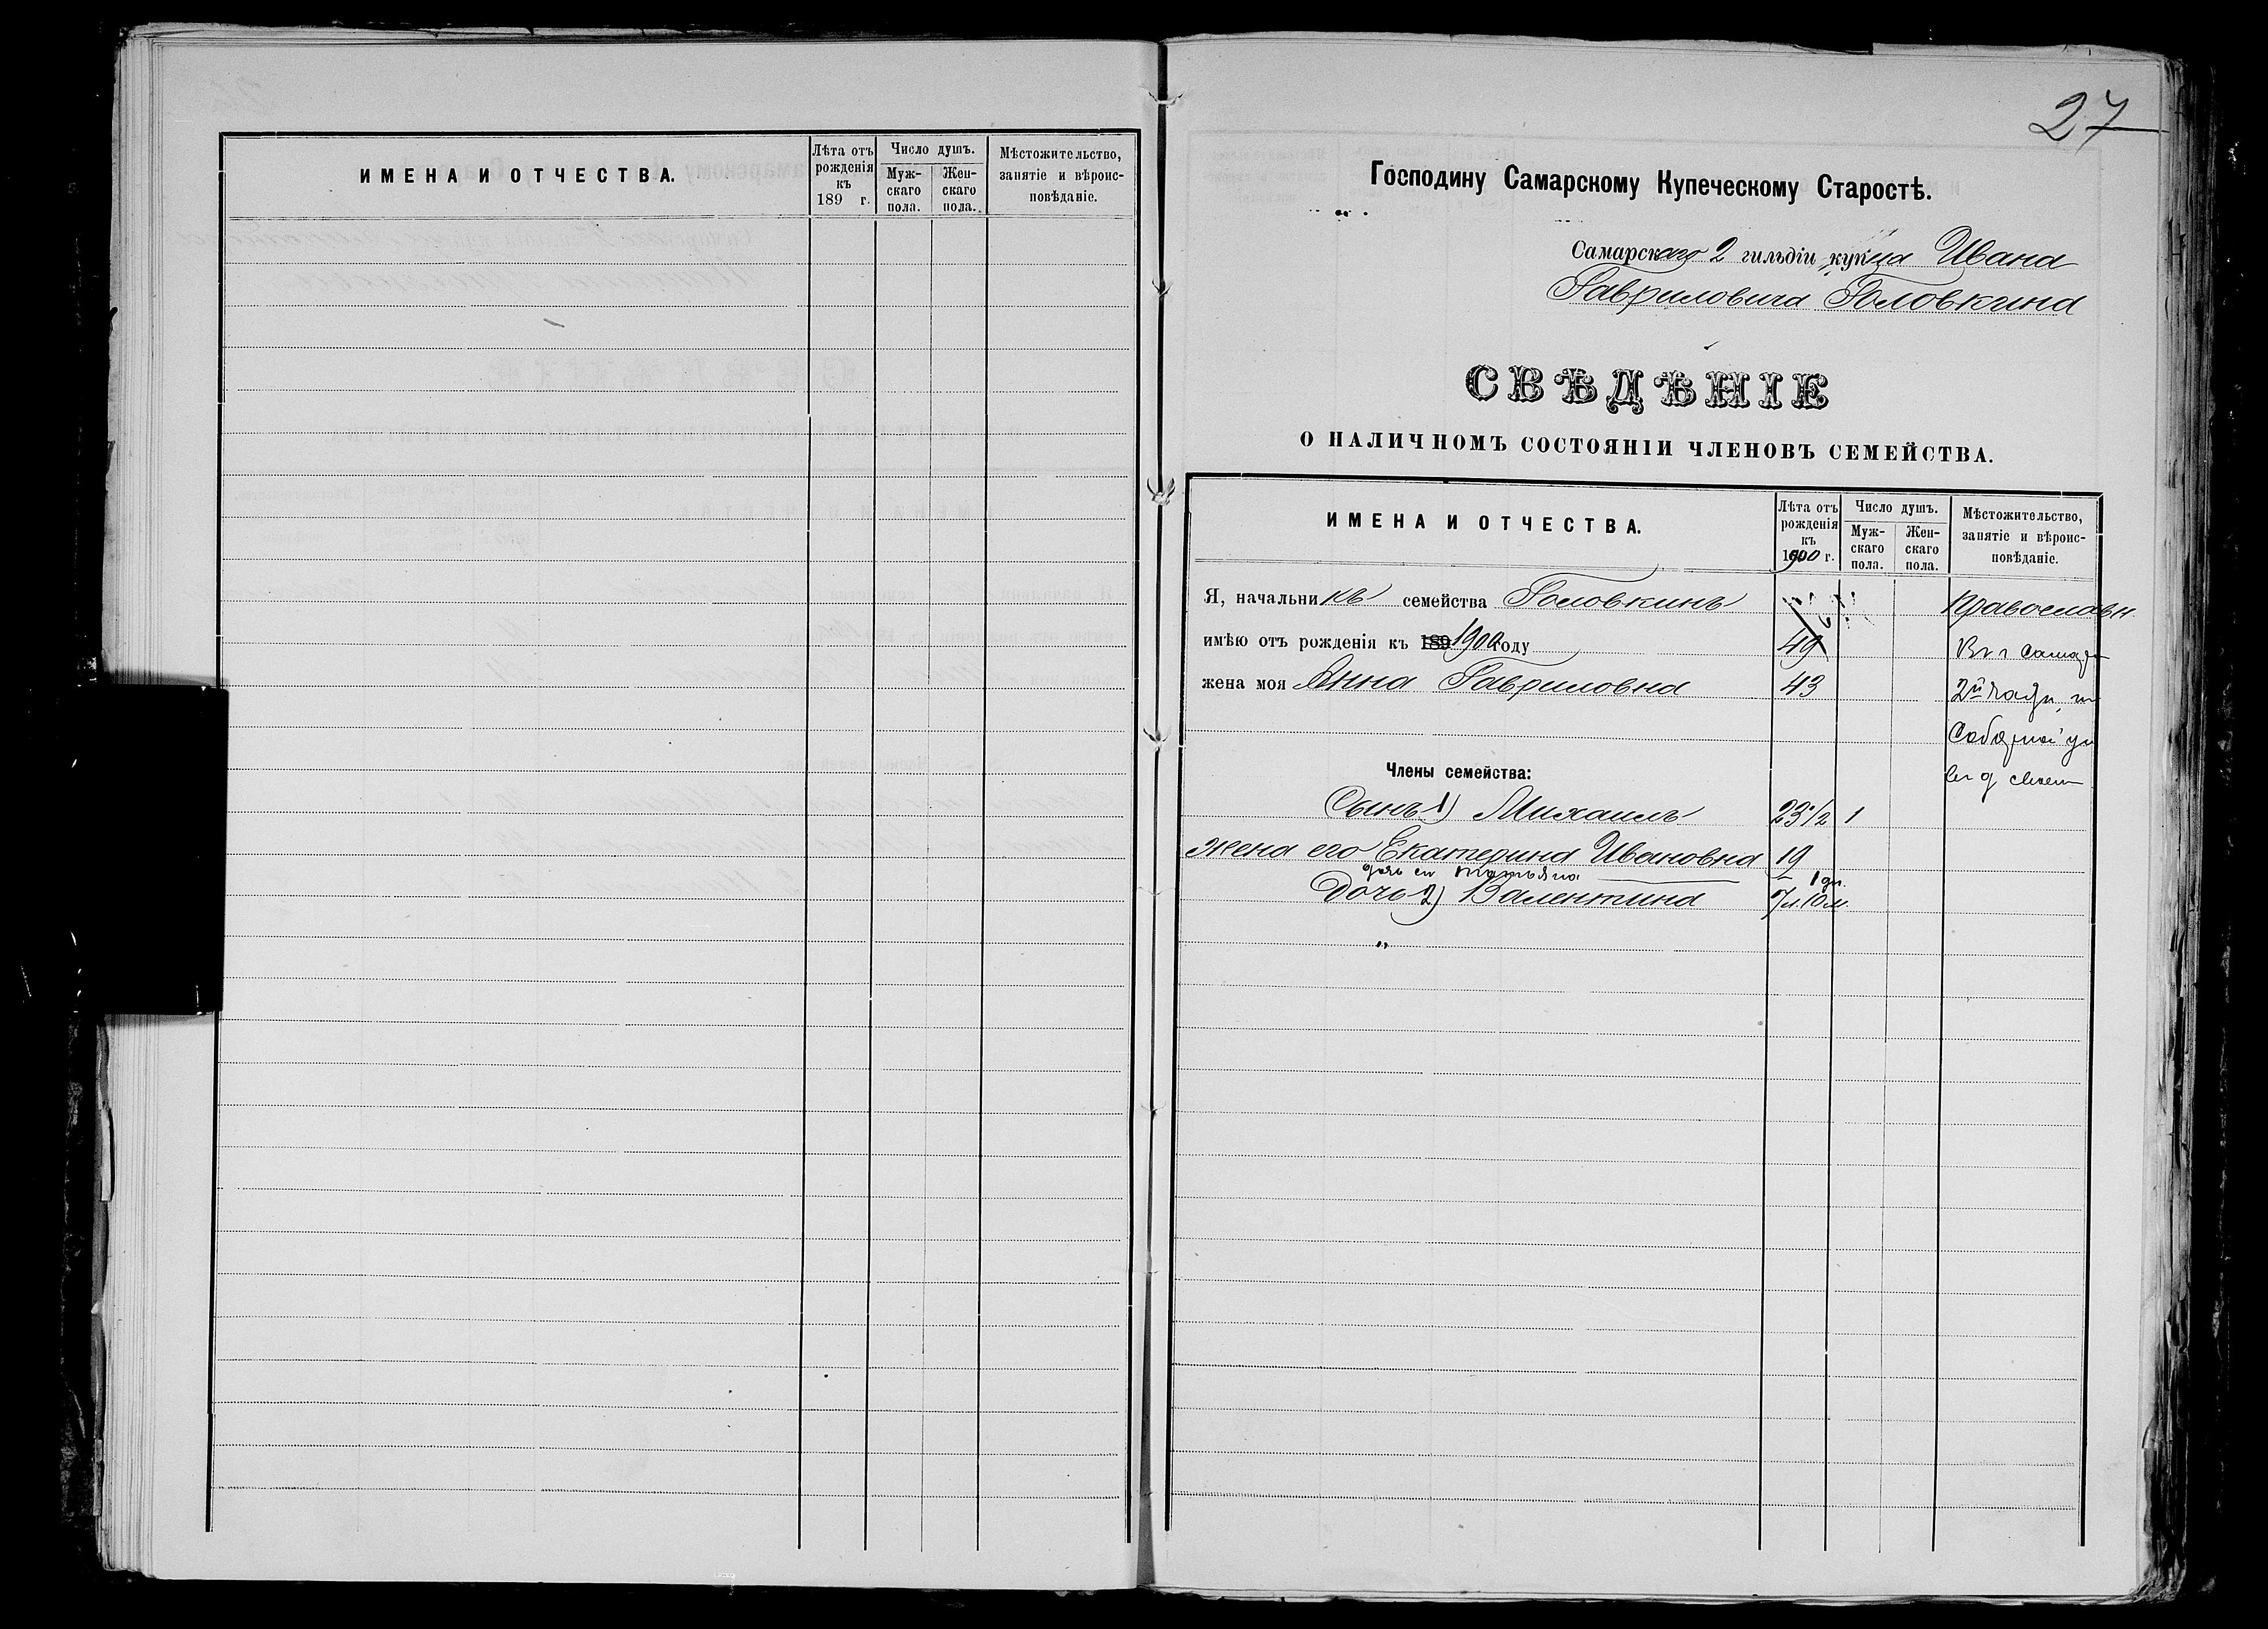 ИМЕНА И ОТЧЕСТВА.
Лѣта отъ рожденія къ 189 г.
Число душъ.
Мужскаго пола.
Женскаго пола.
Мѣстожительство, занятіе и вѣроисповѣданіе.
27
Господину Самарскому Купеческому Старостѣ.
Самарскаго 2 гильдіи купца Ивана
Гавриловича Головкина
СВѢДѢНІЕ
О НАЛИЧНОМЪ СОСТОЯНІИ ЧЛЕНОВЪ СЕМЕЙСТВА.
ИМЕНА И ОТЧЕСТВА.
Лѣта отъ рожденія къ 1900 г.
Число душъ.
Мужскаго пола.
Женскаго пола.
Мѣстожительство, занятіе и вѣроисповѣданіе.
Я, начальникъ семейства Головкинъ Православн.
имѣю отъ рожденія къ 189 1900 году 49 В г Самарѣ
жена моя Анна Гавриловна 43 2й части, на
Соборной ул
в д своем
Члены семейства:
Сынъ 1) Михаилъ 23 1/2 1
жена его Екатерина Ивановна 19
дочь их Татьяна 1 дн.
Дочь 2) Валентина 7 л. 10 м.